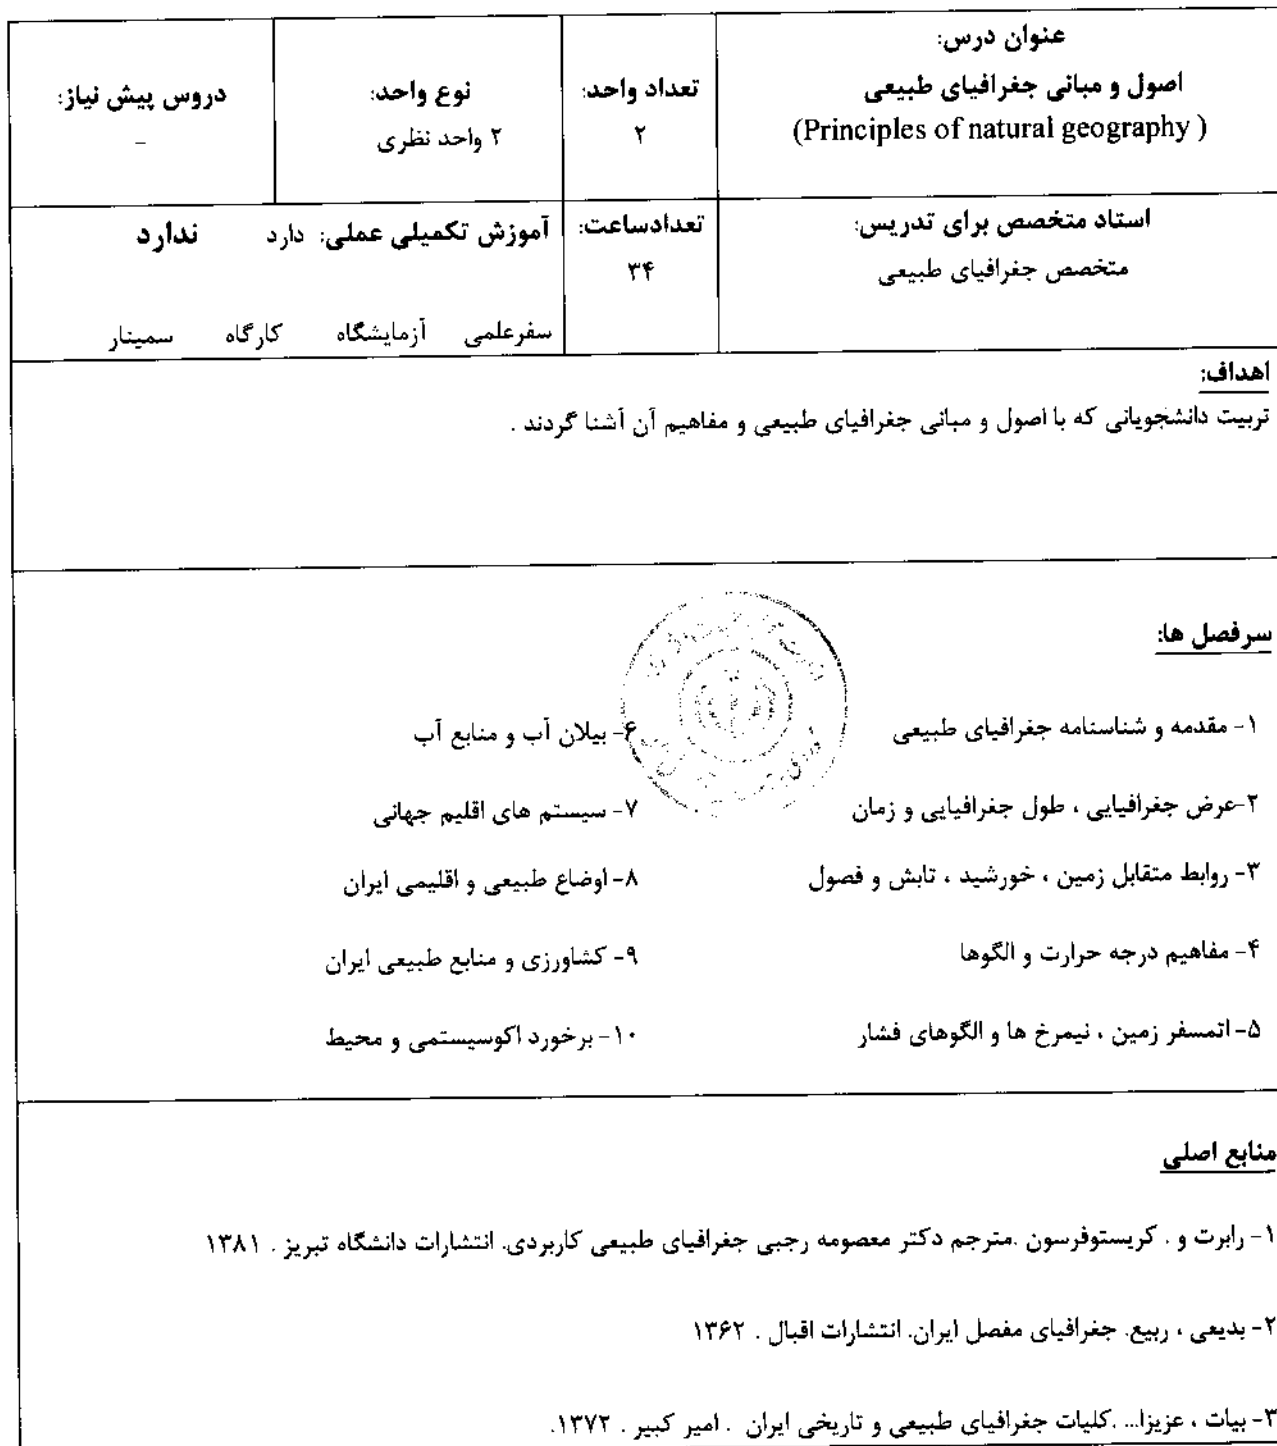 عنوان درس:
اصول و مبانی جغرافیای طبیعی
(Principles of natural geography )
تعداد واحد:
۲
نوع واحد:
۲ واحد نظری
دروس پیش نیاز:
–
استاد متخصص برای تدریس:
متخصص جغرافیای طبیعی
تعدادساعت:
۳۴
آموزش تکمیلی عملی: دارد ندارد
سفرعلمی آزمایشگاه کارگاه سمینار
اهداف:
تربیت دانشجویانی که با اصول و مبانی جغرافیای طبیعی و مفاهیم آن آشنا گردند .
سرفصل ها:
۱- مقدمه و شناسنامه جغرافیای طبیعی
۲-عرض جغرافیایی ، طول جغرافیایی و زمان
۳- روابط متقابل زمین ، خورشید ، تابش و فصول
۴- مفاهیم درجه حرارت و الگوها
۵- اتمسفر زمین ، نیمرخ ها و الگوهای فشار
۶- بیلان آب و منابع آب
۷- سیستم های اقلیم جهانی
۸- اوضاع طبیعی و اقلیمی ایران
۹- کشاورزی و منابع طبیعی ایران
۱۰- برخورد اکوسیستمی و محیط
منابع اصلی
۱- رابرت و . کریستوفرسون .مترجم دکتر معصومه رجبی جغرافیای طبیعی کاربردی. انتشارات دانشگاه تبریز . ۱۳۸۱
۲- بدیعی ، ربیع. جغرافیای مفصل ایران. انتشارات اقبال . ۱۳۶۲
۳- بیات ، عزیزا... .کلیات جغرافیای طبیعی و تاریخی ایران . امیر کبیر . ۱۳۷۲.